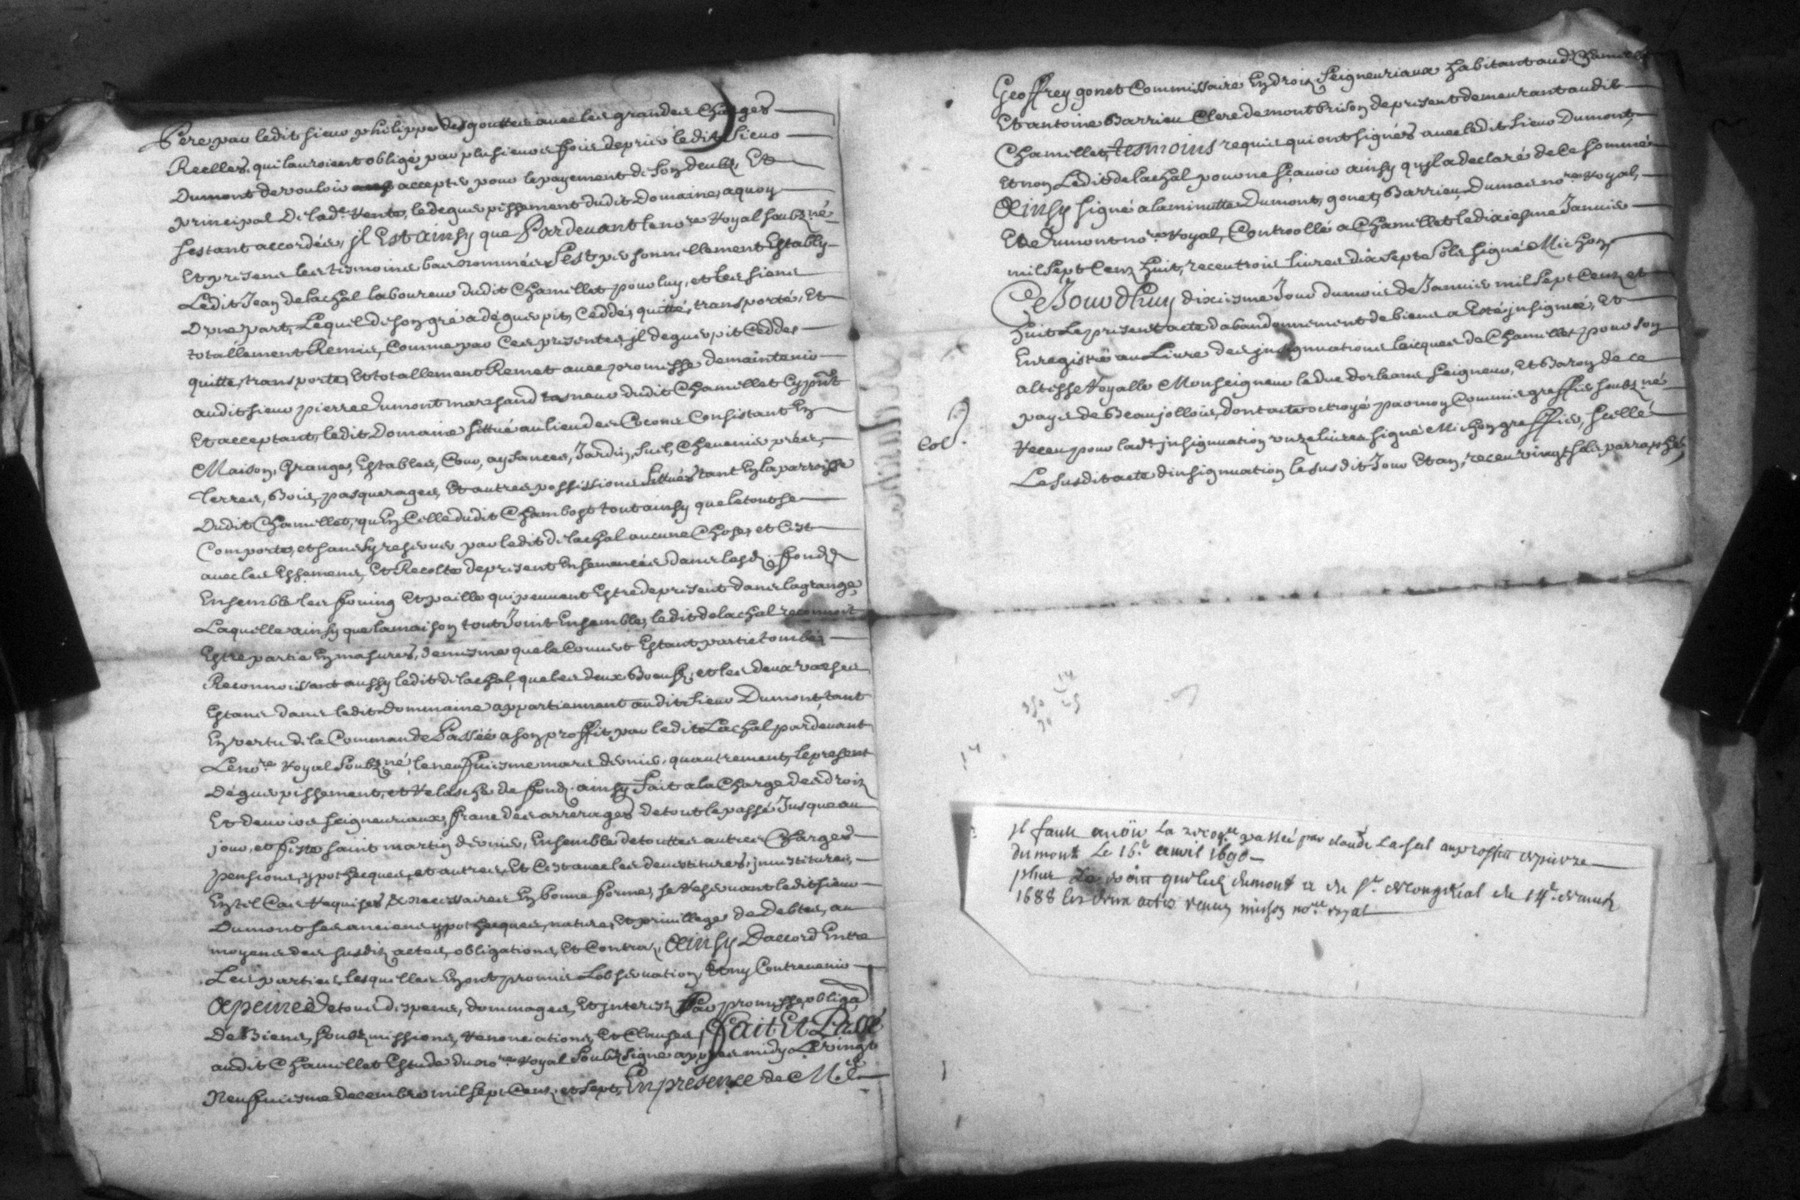 Pere par ledit sieur philippe desgouttes avec les grandes Charges
Reelles, qui lauroient obligé par plusieurs fois de prier ledit sieur
Dumont de vouloir accepter pour le payement de son deubt, Et
principal de lad.e Vente, le deguerpissement dudit Domaine, a quoy
sestant accordés, jl Est ainsy que Pardevant le no.re Royal soubz.né
Et presens les tesmoins bas nommés, sest personnellement Estably
Ledit Jean delachal laboureur dudit Chamillet pour luy, et les siens
D'une part, Lequel de son gré a déguerpit, Ceddé, quitté, transporté, Et
totallement Remis, Comme par Ces presentes jl deguerpit Cedde,
quitte, transporte, Et totallement Remet avec promesse de maintenir
audit sieur pierre Dumont marchand tanneur dudit Chamillet Cy pnt
Et acceptant, ledit Domaine sittué au lieu des Cocons Consistant En
Maison, Granges, Estables, Cour, aysances, Jardin, Suel, Chenevier, prés,
Terres, Bois, pasquerages, Et autres possessions sittués tant En la parroisse
Dudit Chamillet, qu'En Celle dudit Chambost tout ainsy que le tout se
Comporte, et sans sy reserver par ledit delachal aucune Chose, et C'est
avec les Essemens, Et Recolte de present Ensemancés dans lesd. fonds
Ensemble les foins Et paille qui peuvent Estre de present dans la grange,
Laquelle ainsy que la maison tout Joint Ensemble, ledit delachal reconnoit
Estre partie En masures, de mesme que le Couvert Estant partie tombé,
Reconnoissant aussy ledit delachal, que les deux Boeufs, et les deux vaches
Estans dans ledit Dommaine appartiennent audit sieur Dumont, tant
En vertu de la Commande Passée a son proffit par ledit Lachal pardevant
Le no.re Royal soubz.né, le neufviesme mars dernier, qu'autrement, le present
Déguerpissement, et Relasche de fondz ainsy fait a la Charge des droitz
Et devoirs seigneuriaux, franc des arrerages de tout le passé Jusques au
jour, et feste saint martin dernier, Ensemble de touttes autres Charges
pensions, ypotheques, et autres, Et C'est avec les devestitures, jnvestitures,
En tel Cas Requises, & necessaires En bonne forme, se Reservant ledit sieur
Dumont ses anciens ypotheques, nature, Et privillege de debtes, au
moyens des susdits actes, obligations, Et Contra, Ainsy D'accord Entre
Les parties, lesquelles En ont promis L'observation, Et ny Contrevenir
A peine de tous despens, dommages, Et jnterest, Par promesse, obliga.on
De Biens, soubzmissions, Renonciations, Et Clauses, Fait Et Passé
audit Chamillet Estude du no.re Royal soubzsigné appres midy Le vingt
Neufviesme decembre mil sept Cens, et sept, En presence de M.e
Geoffrey gonet Commissaire En droitz seigneuriaux habitant aud. Chamillet
Et antoine Barrieu Clerc de montbrison de present demeurant audit
Chamillet, tesmoins requis qui ont signés avec ledit sieur Dumont,
Et non Ledit delachal pour ne sçavoir ainsy qu'jl a declaré de Ce sommé
Ainsy signé a la minutte Dumont, gonet, Barrieu, Dumas no.re Royal,
Et Dumont no.re Royal, Controollé a Chamillet le dixiesme Janvier
mil sept Cens huit, receu trois livres dix sept sols signé Michon
Ce Jourdhuy dixiesme Jour du mois de Janvier mil sept Cens et
huit Le present acte d'abandonnement de biens a Esté jnsignué, Et
Enregistré au Livre des jnsignuations laicques de Chamillet pour son
altesse Royalle Monseigneur le duc dorleans seigneur, Et Baron de ce
pays de Beaujollois, dont acte octroyé par moy Commis greffier soubz.né
Receu pour lad. jnsignuation onze livres signé Michon greffier, scellé
Le susdit acte d'insignuation le susdit Jour Et an, receu vingt sols parraphé
Col.
14
350 25
20
14
jl faut avoir La recog.ce passée par claude Lachal au proffit de pierre
dumont Le 16.e avril 1690
plus La
1688 les deux actes receus michon no.re royal